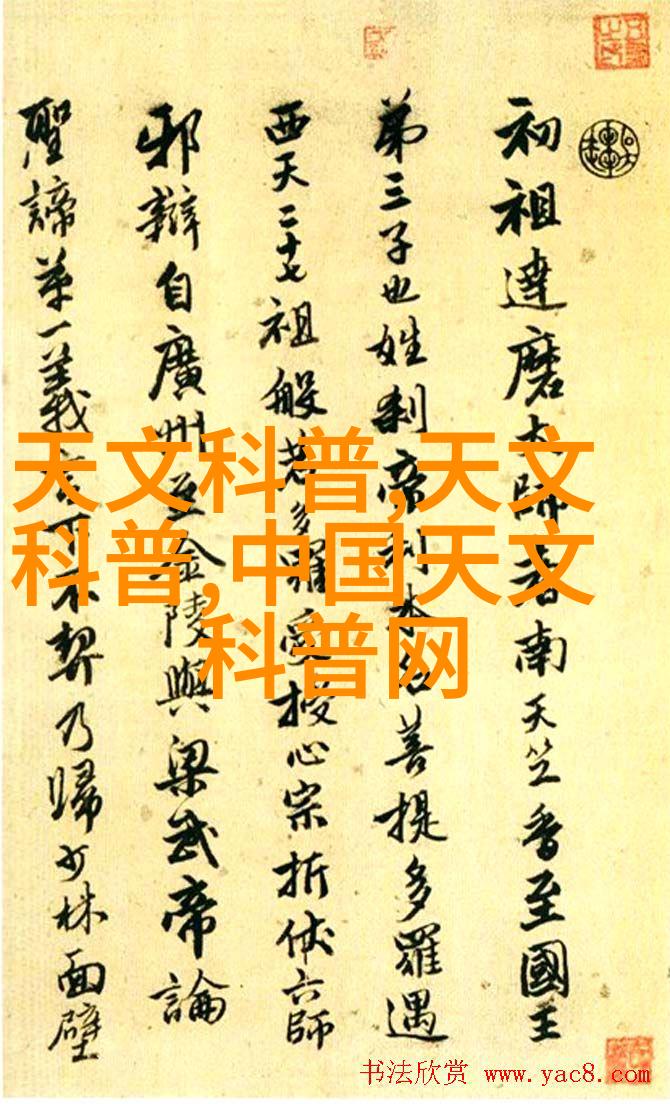 初祖達磨大師者南天竺香至國王
第三子也姓刹帝利本名菩提多羅遇
西天二十七祖般若多羅受授心宗折伏六師
邪辯自廣州至金陵與梁武帝論
聖諦第一義言下不契乃歸少林面壁
天文科普,天文
科普,中国天文
科普网
书法欣赏 www.yac8.com